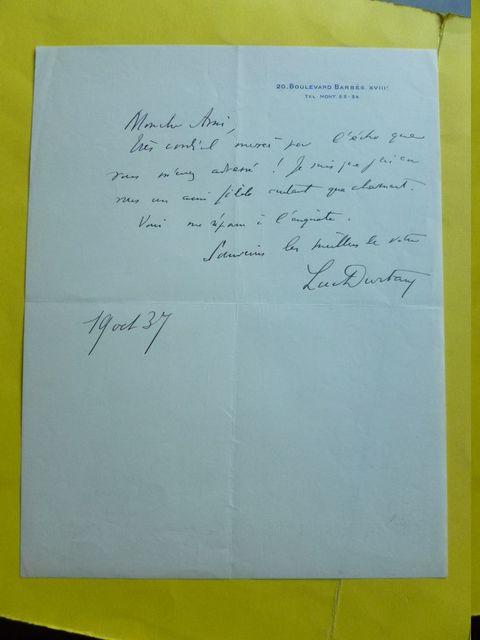 20, BOULEVARD BARBÈS. XVIIIe
TEL. MONT. 55-34
Mon cher Ami,
Très cordial merci pour l'écho que
vous m'avez adressé ! Je sais que j'ai en
vous un ami fidèle autant que charmant.
Voici ma réponse à l'enquête.
Souvenirs les meilleurs de votre
Luc Durtain
19 oct 37